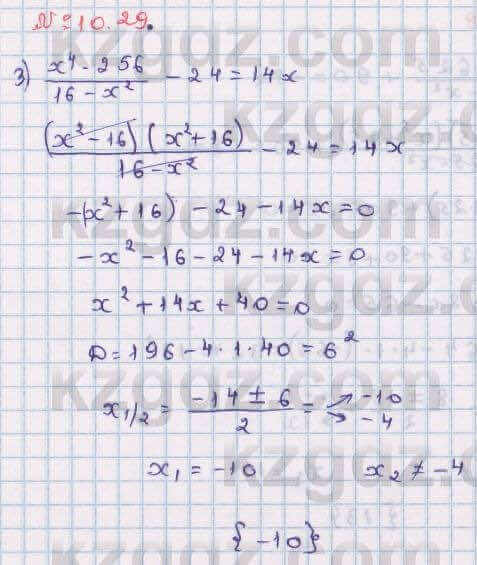 № 210.29.
3) (x⁴ - 256)/(16 - x²) - 24 = 14x
((x² - 16)(x² + 16))/(16 - x²) - 24 = 14x
-(x² + 16) - 24 - 14x = 0
-x² - 16 - 24 - 14x = 0
x² + 14x + 40 = 0
D = 196 - 4 · 1 · 40 = 6²
x₁/₂ = (-14 ± 6)/2 = ↗ -10 ↘ -4
x₁ = -10 x₂ ≠ -4
{-10}
kzgdz.com